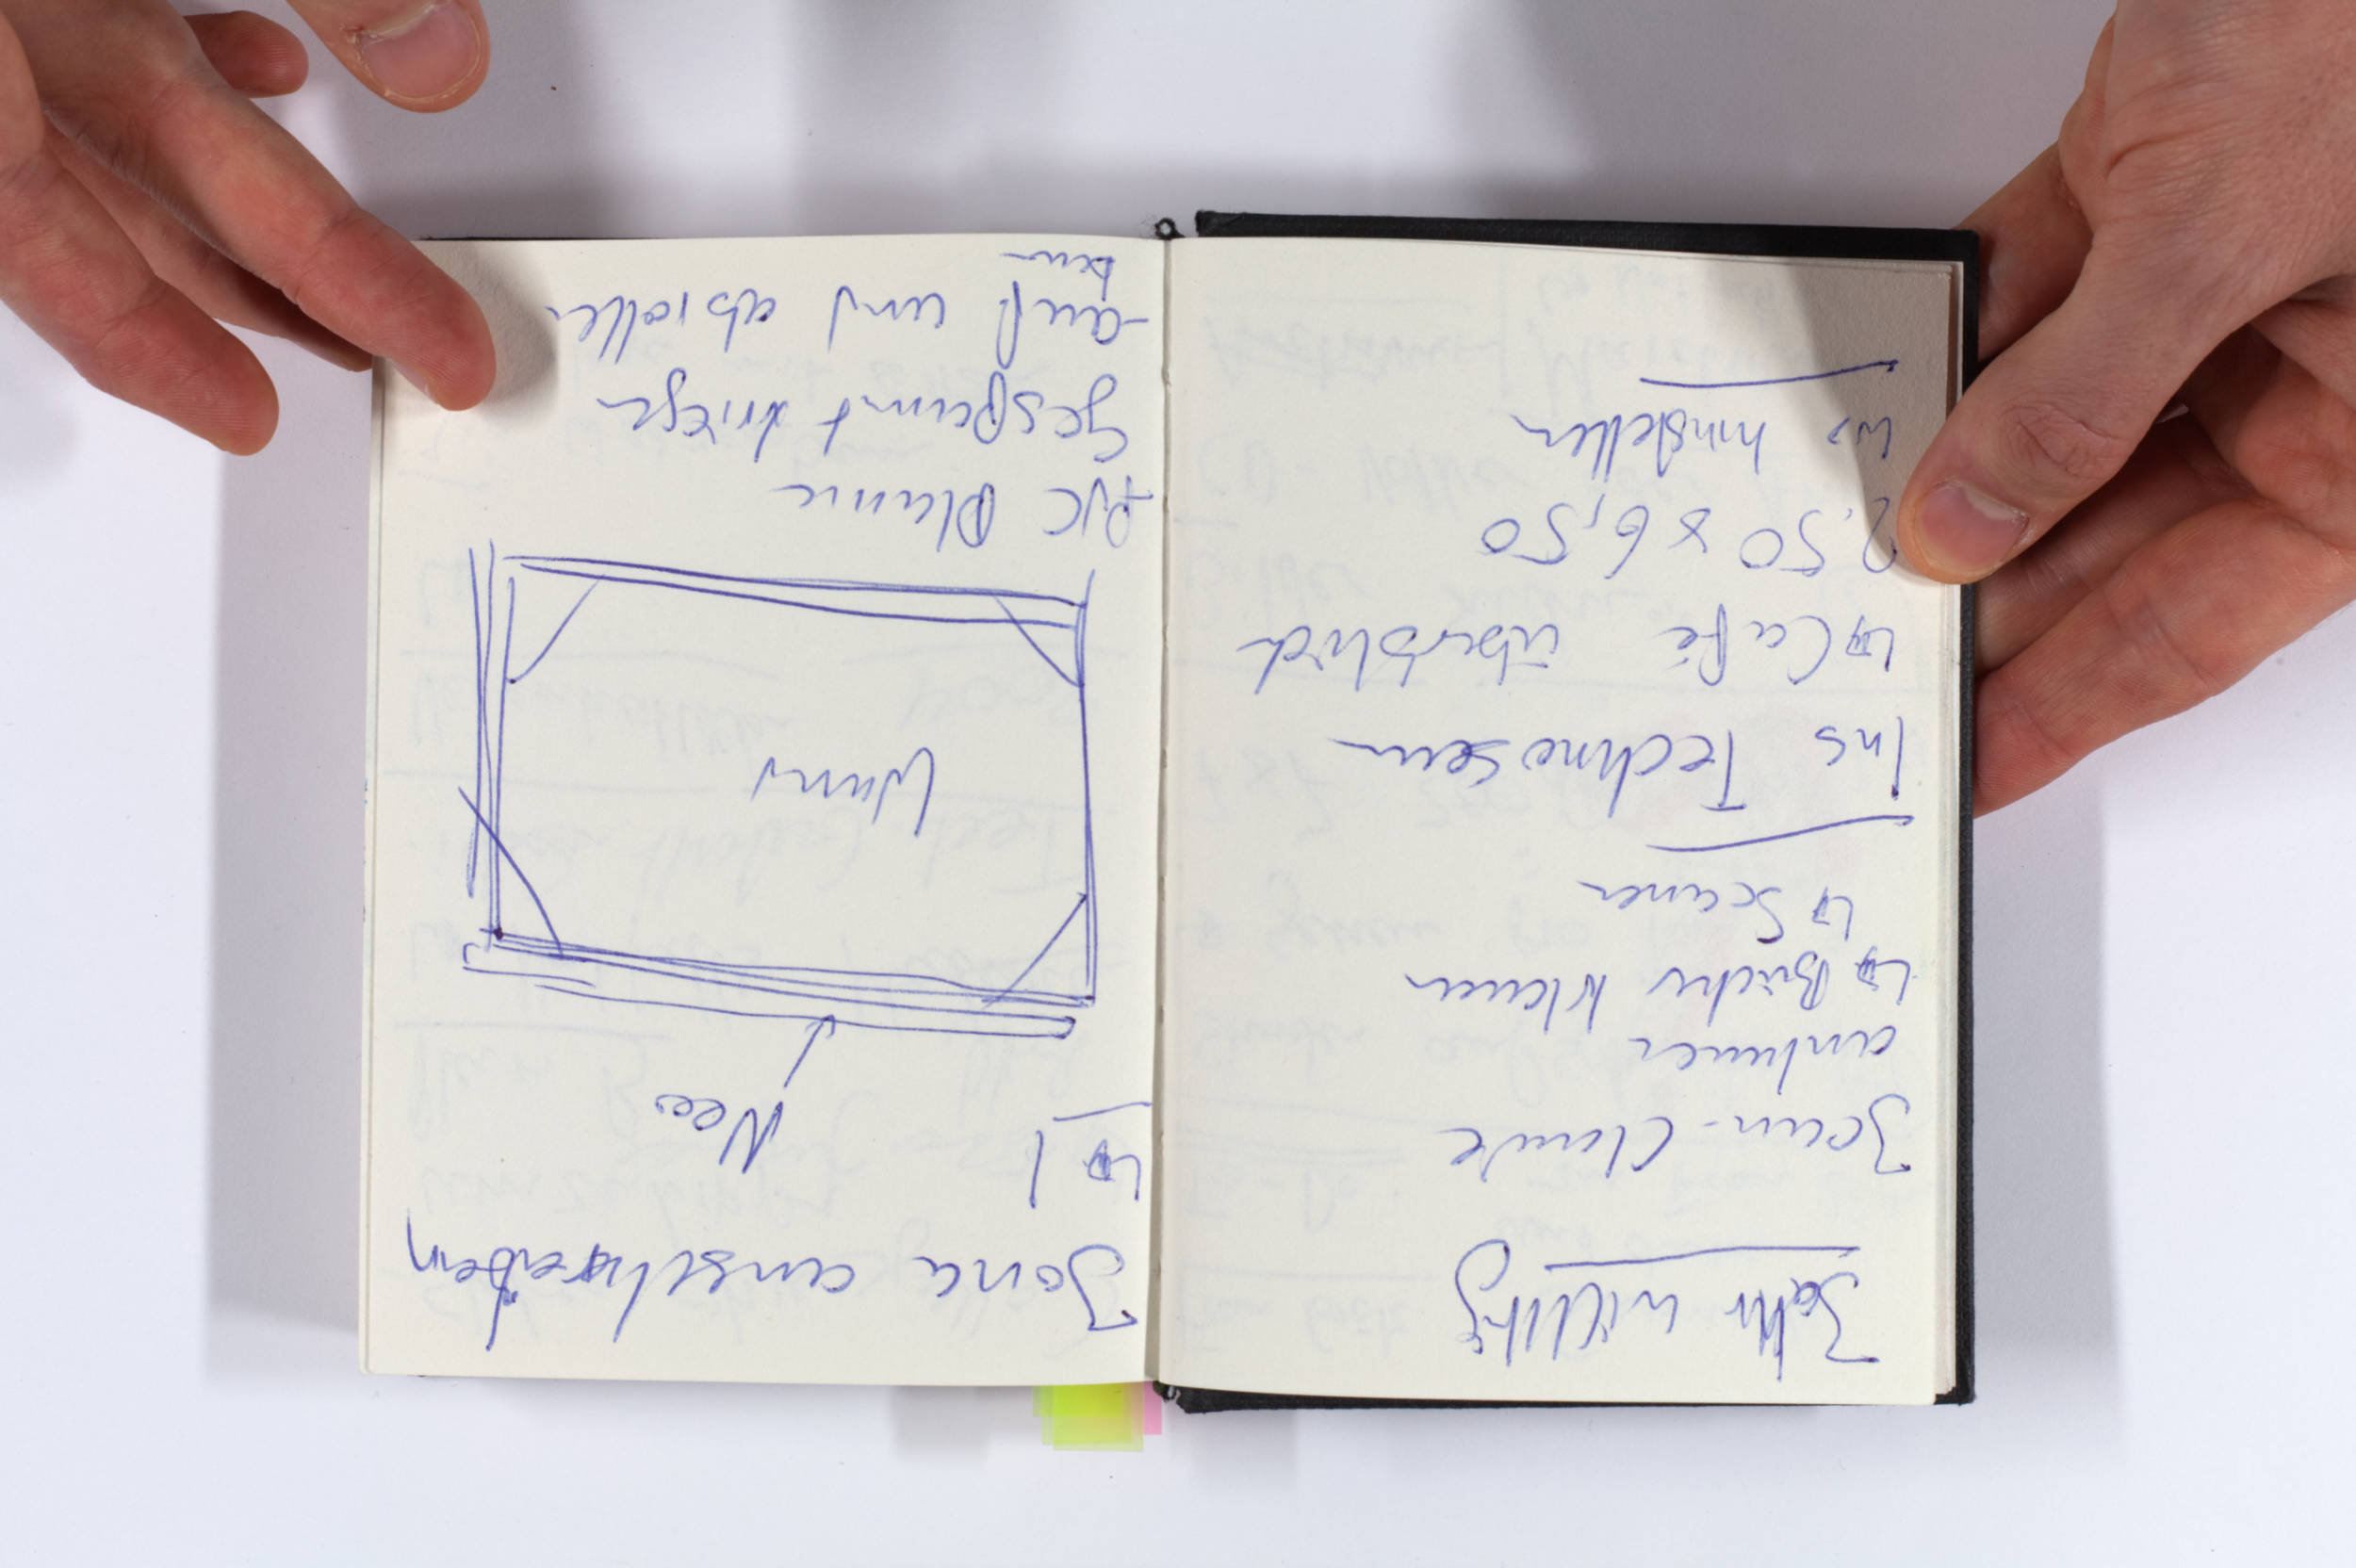 Sehr wichtig
Jean-Claude
anhauen
↳ Bücher klauen
↳ Scanner
Ins Technoseum
↳ Café überblick
2,50 x 6,50
↳ hinstellen
Jona anschreiben
↳ 1
Neo
Wand
PVC Plane
gespannt kriegen
-auf und abrollen